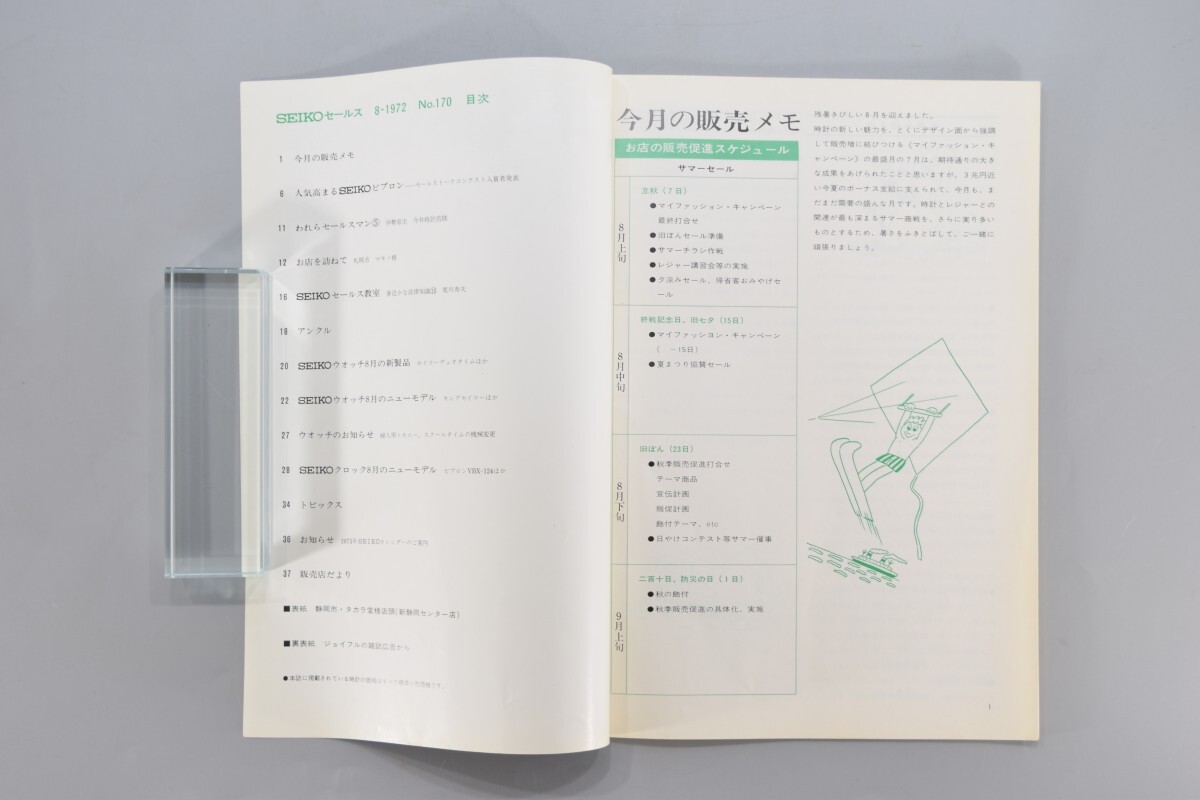 SEIKOセールス 8-1972 No.170 目次
1 今月の販売メモ
6 人気高まるSEIKOビブロン——セールストークコンテスト入賞者発表
11 われらセールスマン⑤
12 お店を訪ねて
16 SEIKOセールス教室
18 アンクル
20 SEIKOウオッチ8月の新製品
22 SEIKOウオッチ8月のニューモデル キングセイコーほか
27 ウオッチのお知らせ
28 SEIKOクロック8月のニューモデル ビブロンVBX-124ほか
34 トピックス
36 お知らせ 1973年SEIKOカレンダーのご案内
37 販売店だより
■表紙 静岡市・タカラ堂様店頭(新静岡センター店)
■裏表紙 ジョイフルの雑誌広告から
今月の販売メモ
お店の販売促進スケジュール
サマーセール
8月上旬
立秋(7日)
●マイファッション・キャンペーン
最終打合せ
●旧ぼんセール準備
●サマーチラシ作戦
●レジャー講習会等の実施
●夕涼みセール、帰省客おみやげセ
ール
8月中旬
終戦記念日、旧七夕(15日)
●マイファッション・キャンペーン
( ―15日)
●夏まつり協賛セール
8月下旬
旧ぼん(23日)
●秋季販売促進打合せ
テーマ商品
宣伝計画
販促計画
飾付テーマ、etc
●日やけコンテスト等サマー催事
9月上旬
二百十日、防災の日(1日)
●秋の飾付
●秋季販売促進の具体化、実施
残暑きびしい8月を迎えました。
時計の新しい魅力を、とくにデザイン面から強調
して販売増に結びつける〈マイファッション・キ
ャンペーン〉の最盛月の7月は、期待通りの大き
な成果をあげられたことと思いますが、3兆円近
い今夏のボーナス支給に支えられて、今月も、ま
だまだ需要の盛んな月です。時計とレジャーとの
関連が最も深まるサマー商戦を、さらに実り多い
ものとするため、暑さをふきとばして、ご一緒に
頑張りましょう。
1